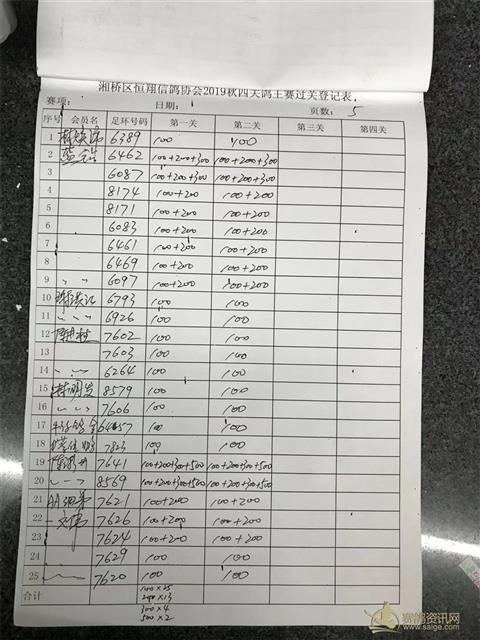 湘桥区恒翔信鸽协会2019秋四关鸽王赛过关登记表
赛项: 日期: 页数: 5
序号 会员名 足环号码 第一关 第二关 第三关 第四关
1 6389 100 100
2 6462 100+200+300 100+200+300
3 6087 100+200+300 100+200+300
4 8174 100+200 100+200
5 8171 100+200 100+200
6 6083 100+200 100+200
7 6461 100+200 100+200
8 6469 100+200 100+200
9 6097 100+200 100+200
10 6793 100 100
11 6926 100 100
12 7602 100 100
13 7603 100 100
14 6264 100 100
15 8579 100 100
16 7606 100 100
17 100 100
18 7823 100 100
19 7641 100+200+300+500 100+200+300+500
20 8569 100+200+300+500 100+200+300+500
21 7621 100+200 100+200
22 7626 100+200 100+200
23 7624 100+200 100+200
24 7629 100 100
25 7620 100 100
合计 100×25
200×13
300×4
500×2
赛鸽资讯网
www.saige.com